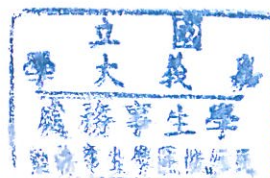 國立
嘉義大學
學生事務處